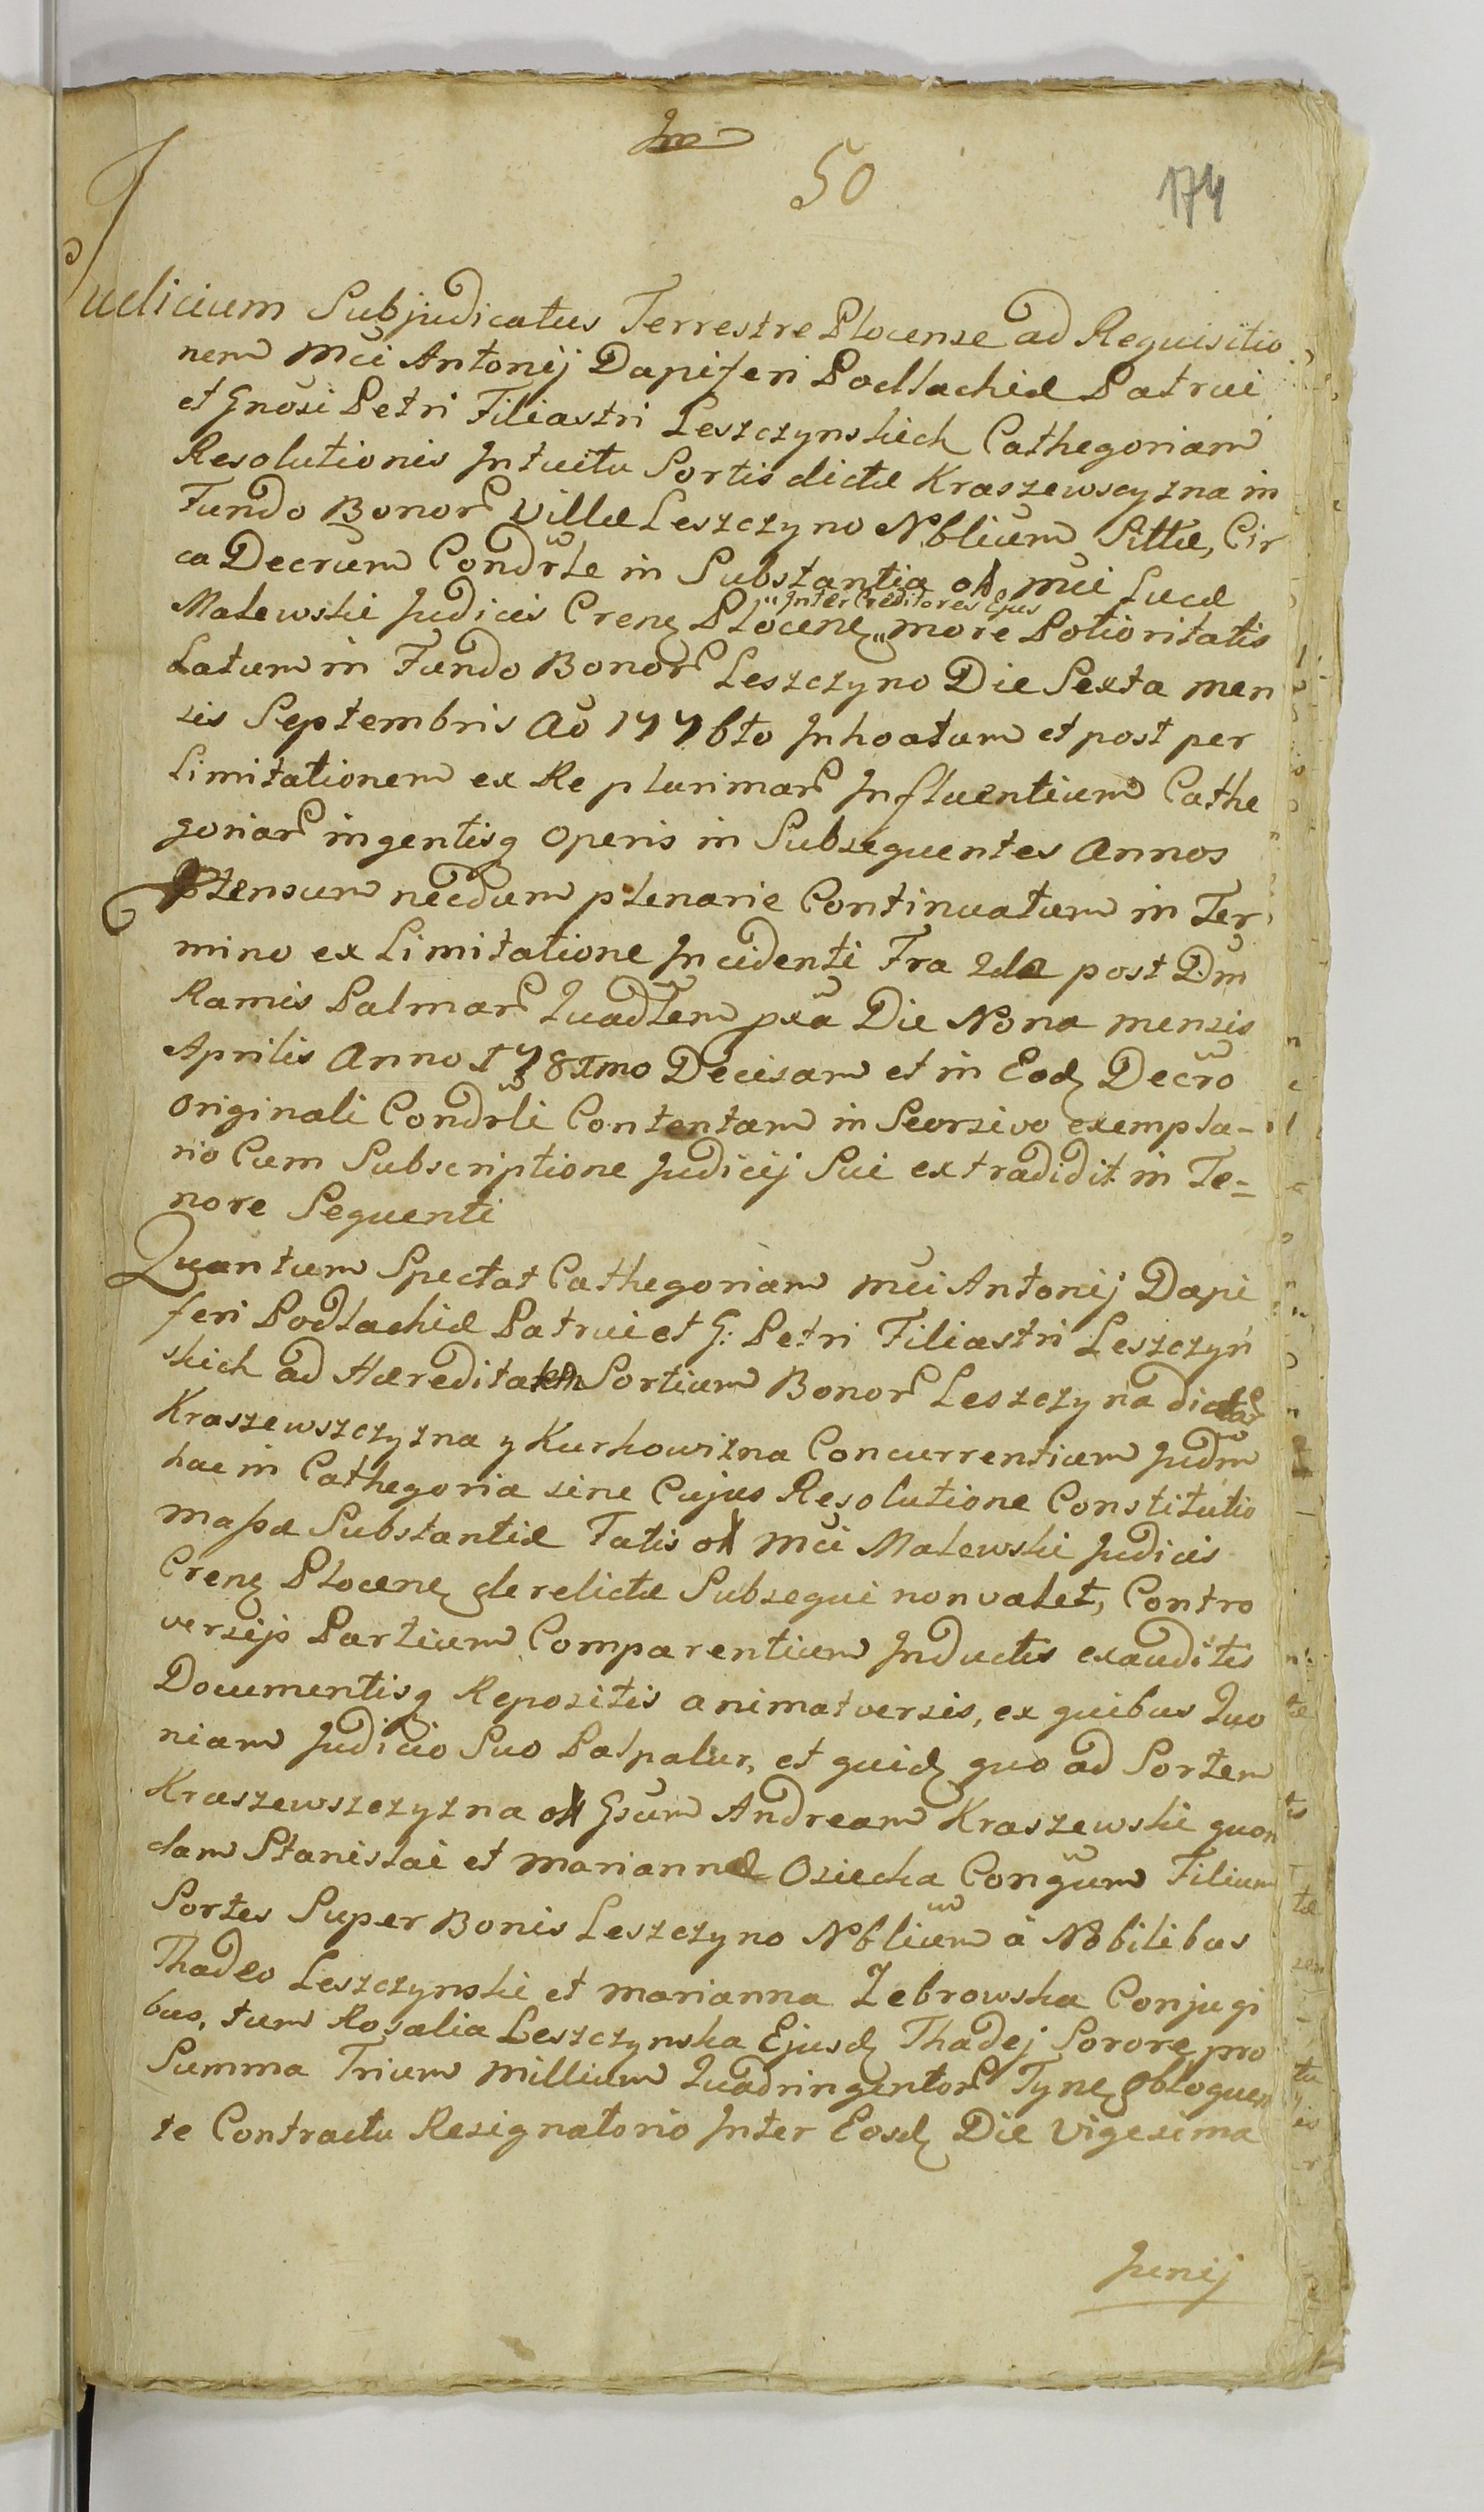 50
174
Judicium Subjudicatus Terrestre Plocense ad Requisitio
nem Mci Antonij Dapiferi Podlachiæ Patrui
et Gnosi Petri Filiastri Leszczynskich Cathegoriam
Resolutionis Intuitu Sortis dictæ Kraszewscyzna in
Fundo Bonor Villæ Leszczyno Nblium Sittæ, Cir
ca Decrum Condrle in Substantia olt Mci Lucæ
"Inter Creditores Ejus
Malewski Judicis Crenę Plocenę " more Potioritatis
Latum in Fundo Bonor Leszczyno Die Sexta men
sis Septembris Aō 1776to Inhoatum et post per
Limitationem ex Re plurimar Influentium Cathe
goriar ingentisq Operis in Subsequentes Annos
Ptensum necdum plenarie Continuatum in Ter
mino ex Limitatione Incidenti Fra 2da post Dm
Ramis Palmar Quadlem pxa Die Nona mensis
Aprilis Anno 1781mo Decisam et in Eod Decro
Originali Condrli Contentam in Seorsivo exempla-
rio Cum Subscriptione Judicij Sui extradidit in Te-
nore Sequenti
Quantum Spectat Cathegoriam Mci Antonij Dapi
feri Podlachiæ Patrui et G: Petri Filiastri Leszczyń
skich ad Hæreditatem Sortium Bonor Leszczyna dictar
Kraszewszczyzna y Kurkowizna Concurrentium Judm
hac in Cathegoria sine Cujus Resolutione Constitutio
massæ Substantiæ Fatis olt Mci Malewski Judicis
Crenę Plocenę derelictæ Subsequi non valet, Contro
versijs Partium Comparentium Inductis exauditis
Documentisq Repositis animatversis, ex quibus Quo
niam Judicio Suo Patpatur, et quid quo ad Sortem
Kraszewszczyzna olt Gsum Andream Kraszewski quon
dam Stanislai et Mariannæ Osiecka Congum Filium
Sortes Super Bonis Leszczyno Nblium à Nobilibus
Thadeo Leszczynski et Marianna Zebrowska Conjugi
bus, tum Rosalia Leszczynska Ejusd Thadej Sorore pro
Summa Trium Millium Quadringentor Tynę Obloquen
te Contractu Resignatorio Inter Eosd Die Vigesima
Junij